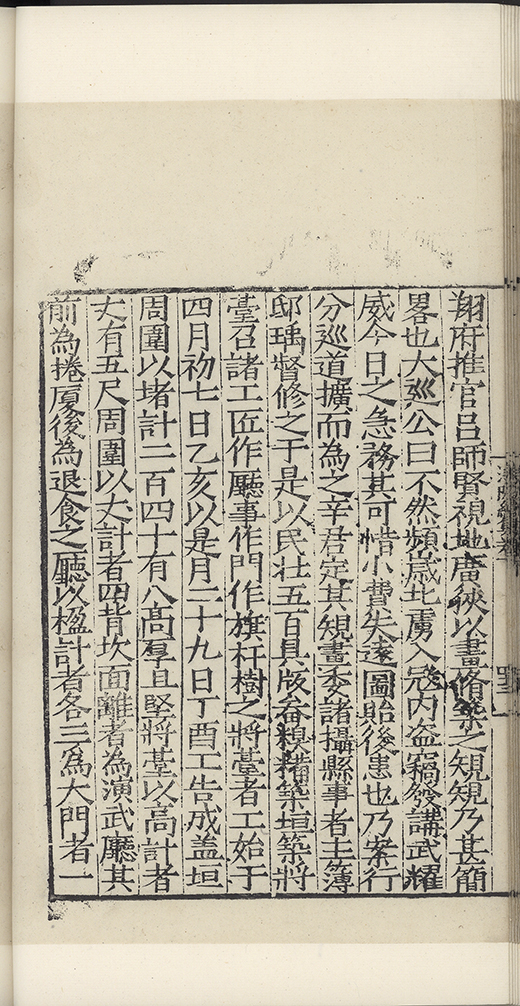 翔府推官吕師賢視地廣狹以畫脩築之規規乃甚簡
畧也大巡公曰不然頻歲北虜入寇内盗竊發講武耀
威今日之急務其可惜小費失遠圖貽後患也乃案行
分巡道擴而為之辛君定其規畫委諸攝縣事者主簿
邸瑀督修之于是以民壮五百具版畚糗糒築垣築將
臺召諸工匠作廳事作門作旗杆樹之將臺者工始于
四月初七日乙亥以是月二十九日丁酉工告成盖垣
周圍以堵計二百四十有八高厚且堅將臺以高計者
丈有五尺周圍以丈計者四背坎面離者為演武廳其
前為捲厦後為退食之廳以楹計者各三為大門者一